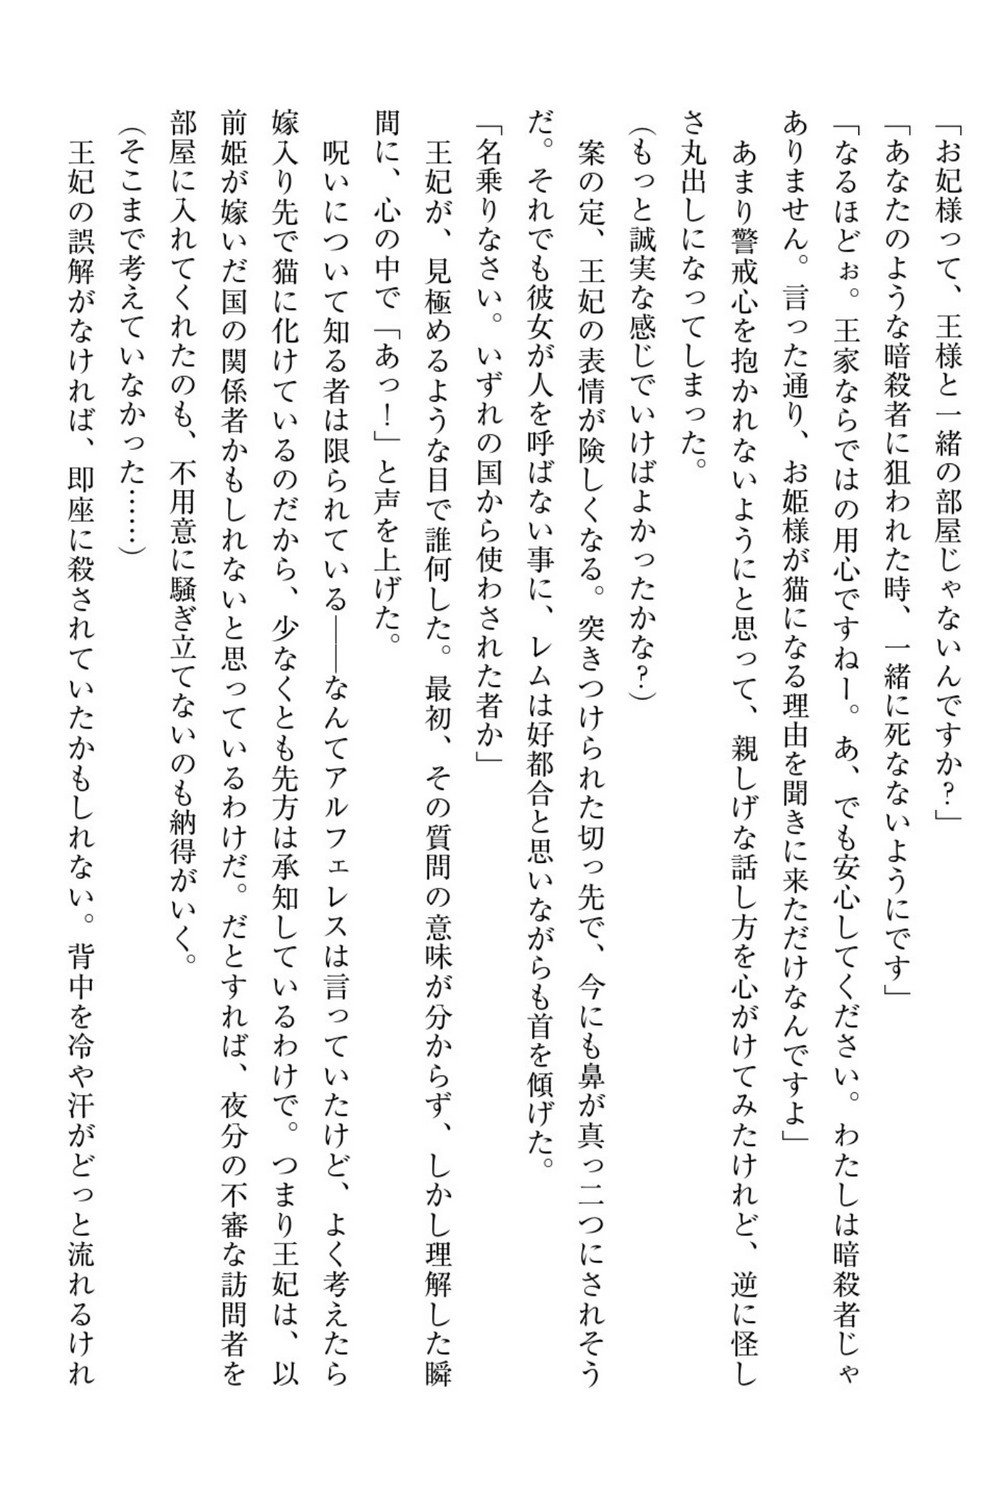 「お妃様って、王様と一緒の部屋じゃないんですか？」
「あなたのような暗殺者に狙われた時、一緒に死なないようにです」
「なるほどぉ。王家ならではの用心ですねー。あ、でも安心してください。わたしは暗殺者じゃ
ありません。言った通り、お姫様が猫になる理由を聞きに来ただけなんですよ」
あまり警戒心を抱かれないようにと思って、親しげな話し方を心がけてみたけれど、逆に怪し
さ丸出しになってしまった。
（もっと誠実な感じでいけばよかったかな？）
案の定、王妃の表情が険しくなる。突きつけられた切っ先で、今にも鼻が真っ二つにされそう
だ。それでも彼女が人を呼ばない事に、レムは好都合と思いながらも首を傾げた。
「名乗りなさい。いずれの国から使わされた者か」
王妃が、見極めるような目で誰何した。最初、その質問の意味が分からず、しかし理解した瞬
間に、心の中で「あっ！」と声を上げた。
呪いについて知る者は限られている――なんてアルフェレスは言っていたけど、よく考えたら
嫁入り先で猫に化けているのだから、少なくとも先方は承知しているわけで。つまり王妃は、以
前姫が嫁いだ国の関係者かもしれないと思っているわけだ。だとすれば、夜分の不審な訪問者を
部屋に入れてくれたのも、不用意に騒ぎ立てないのも納得がいく。
（そこまで考えていなかった……）
王妃の誤解がなければ、即座に殺されていたかもしれない。背中を冷や汗がどっと流れるけれ